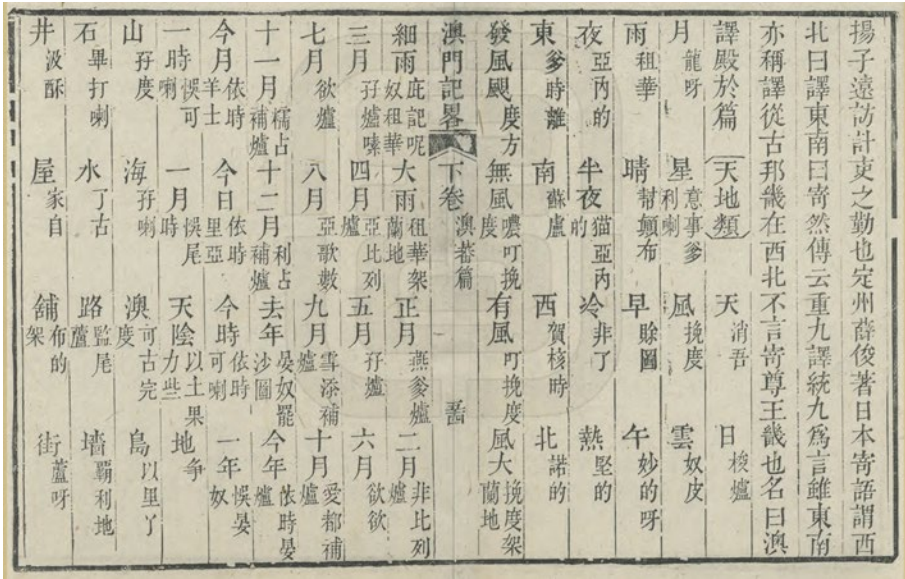 揚子遠訪計吏之勤也定州薛俊著日本寄語謂西
北曰譯東南曰寄然傳云重九譯統九為言雖東南
亦稱譯從古邦畿在西北不言寄尊王畿也名曰澳
譯殿於篇 天地類 天 消吾 日 梭爐
月 龍呀 星 意事爹利喇 風 挽度 雲 奴皮
雨 租華 晴 幇顛布 早 賒圖 午 妙的呀
夜 亞內的 半夜 猫亞內的 冷 非了 熱 堅的
東 爹時離 南 蘇盧 西 賀核時 北 諾的
發風颶 度方 無風 噥叮挽度 有風 叮挽度 風大 挽度架蘭地
澳門記畧 下卷 澳蕃篇
細雨 庇記呢奴租華 大雨 租華架蘭地 正月 燕爹爐 二月 非比列爐
三月 孖爐嗦 四月 亞比列爐 五月 孖爐 六月 欲欲
七月 欲爐 八月 亞歌數 九月 雪添補爐 十月 愛都補爐
十一月 糯占補爐 十二月 利占補爐 去年 晏奴罷沙圖 今年 依時晏爐
今月 依時羊士 今日 依時里亞 今時 依時可喇 一年 悞晏奴
一時 悞可喇 一月 悞尾時 天陰 以土果力些 地 爭
山 孖度 海 孖喇 澳 可古完度 島 以里丫
石 畢打喇 水 了古 路 監尾蘆 墻 覇利地
井 汲酥 屋 家自 舖 布的架 街 蘆呀